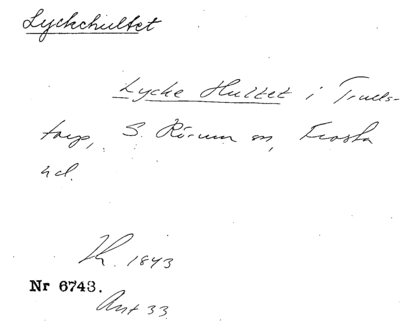 Lyckehultet
Lycke Hultet i Truls-
torp, S. Rörum sn, Frosta
hd.
Th. 1843
Nr 6743.
Ant 33